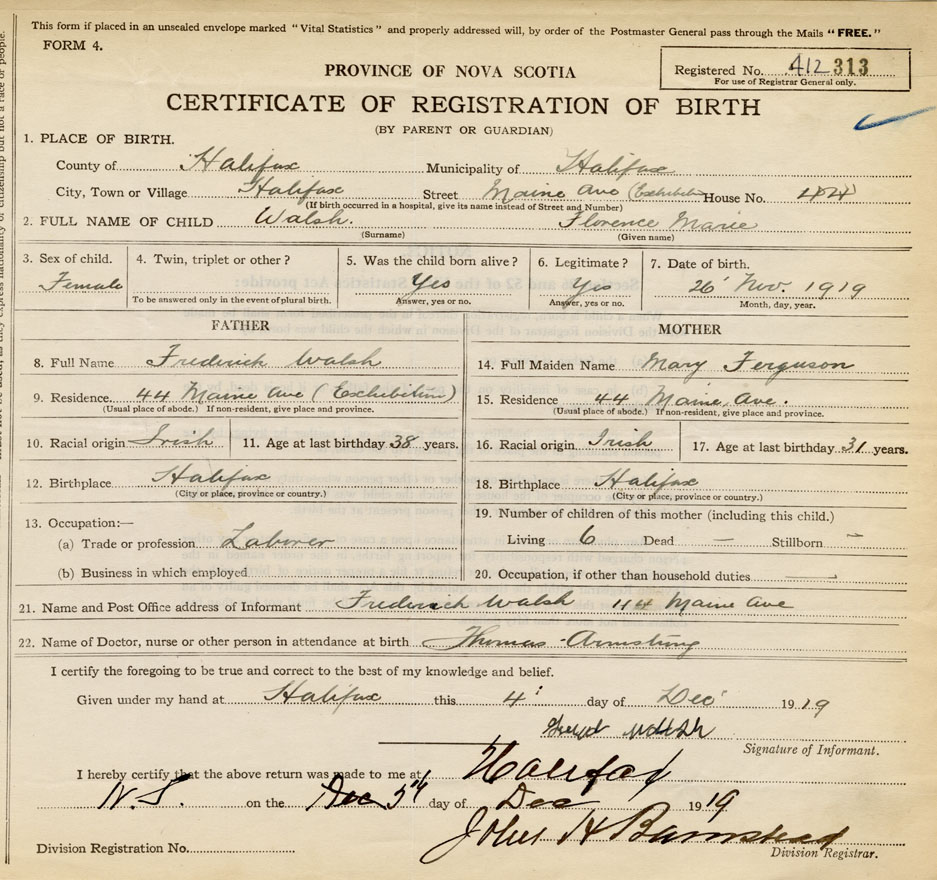 This form if placed in an unsealed envelope marked "Vital Statistics" and properly addressed will, by order of the Postmaster General pass through the Mails "FREE."
FORM 4.
PROVINCE OF NOVA SCOTIA
Registered No. 412 313
For use of Registrar General only.
CERTIFICATE OF REGISTRATION OF BIRTH
(BY PARENT OR GUARDIAN)
1. PLACE OF BIRTH.
County of Halifax Municipality of Halifax
City, Town or Village Halifax Street Maine Ave (Exhibition House No. 44
(If birth occurred in a hospital, give its name instead of Street and Number)
2. FULL NAME OF CHILD Walsh. Florence Marie
(Surname) (Given name)
3. Sex of child. 4. Twin, triplet or other? 5. Was the child born alive? 6. Legitimate? 7. Date of birth.
Female Yes Yes 26 Nov. 1919
To be answered only in the event of plural birth. Answer, yes or no. Answer, yes or no. Month, day, year.
FATHER MOTHER
8. Full Name Frederick Walsh 14. Full Maiden Name Mary Ferguson
9. Residence 44 Maine Ave (Exhibition) 15. Residence 44 Maine Ave.
(Usual place of abode.) If non-resident, give place and province. (Usual place of abode.) If non-resident, give place and province.
10. Racial origin Irish 11. Age at last birthday 38 years. 16. Racial origin Irish 17. Age at last birthday 31 years.
12. Birthplace Halifax 18. Birthplace Halifax
(City or place, province or country.) (City or place, province or country.)
13. Occupation:— 19. Number of children of this mother (including this child.)
(a) Trade or profession Laborer Living 6 Dead — Stillborn —
(b) Business in which employed 20. Occupation, if other than household duties —
21. Name and Post Office address of Informant Frederick Walsh 44 Maine Ave
22. Name of Doctor, nurse or other person in attendance at birth Thomas Armstrong
I certify the foregoing to be true and correct to the best of my knowledge and belief.
Given under my hand at Halifax this 4 day of Dec 1919
Walsh
Signature of Informant.
I hereby certify that the above return was made to me at Halifax
N.S. on the Dec 5th day of Dec 1919
John H Barnstead
Division Registration No. Division Registrar.